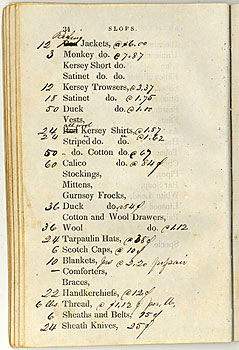 34 SLOPS.
12 Jackets, @ $6.00
3 Monkey do. @ 7.87
Kersey Short do.
Satinet do. do.
12 Kersey Trowsers, @ 3.37
18 Satinet do. @ 1.75
50 Duck do. @ 1.00
Vests,
24 Red Kersey Shirts, @ 1.87
24 Striped do. do. @ 1.62
50 do. Cotton do. @ 67
60 Calico do. @ 54¢
Stockings,
Mittens,
Gurnsey Frocks,
36 Duck do. @ 54¢
Cotton and Wool Drawers,
36 Wool do. @ 1.12
24 Tarpaulin Hats, @ 38¢
6 Scotch Caps, @ 10¢
10 Blankets, @ 3.20 pr pair
— Comforters,
Braces,
22 Handkerchiefs, @ 12¢
6 lbs Thread, @ 1.12 ¢ per. lb.
6 Sheaths and Belts, 25¢
24 Sheath Knives, 25¢